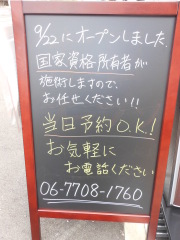 9/22にオープンしました。
国家資格所有者が
施術しますので、
お任せください!!
当日予約O.K!
お気軽に
お電話ください
06-7708-1760